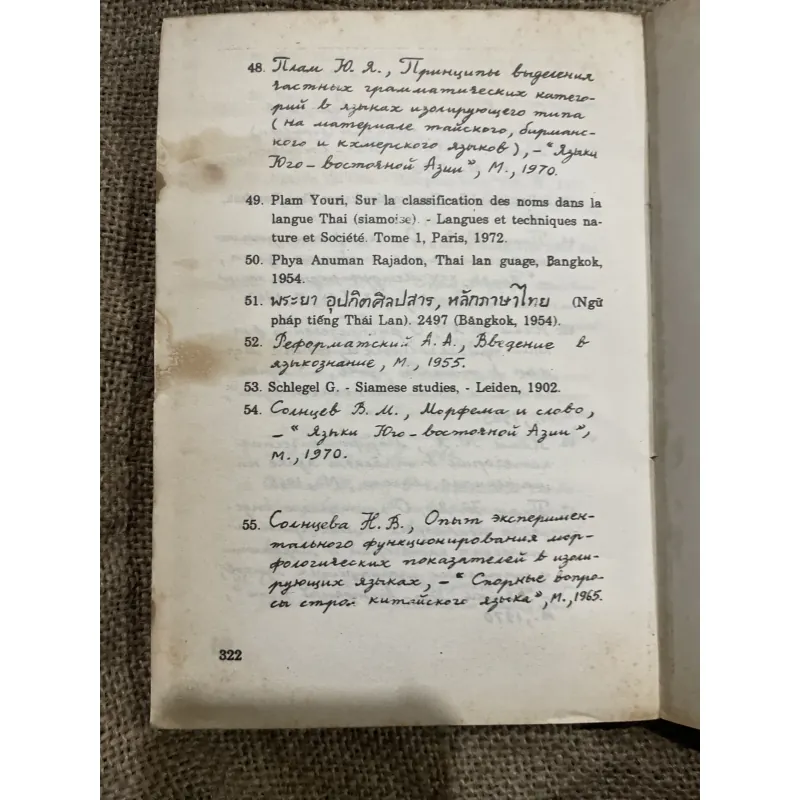 48. Плам Ю. Я., Принципы выделения
частных грамматических катего-
рий в языках изолирующего типа
(на материале тайского, бирманс-
кого и кхмерского языков), – "Языки
Юго – восточной Азии", М., 1970.
49. Plam Youri, Sur la classification des noms dans la
langue Thai (siamoise). - Langues et techniques na-
ture et Société. Tome 1, Paris, 1972.
50. Phya Anuman Rajadon, Thai lan guage, Bangkok,
1954.
51. พระยา อุปกิตศิลปสาร, หลักภาษาไทย (Ngữ
pháp tiếng Thái Lan). 2497 (Băngkok, 1954).
52. Реформатский А. А., Введение в
языкознание, М., 1955.
53. Schlegel G. - Siamese studies, - Leiden, 1902.
54. Солнцев В. М., Морфема и слово,
– " Языки Юго – восточной Азии",
М., 1970.
55. Солнцева Н. В., Опыт эксперимен-
тального функционирования мор-
фологических показателей в изоли-
рующих языках, – " Спорные вопро-
сы строя китайского языка", М., 1965.
322